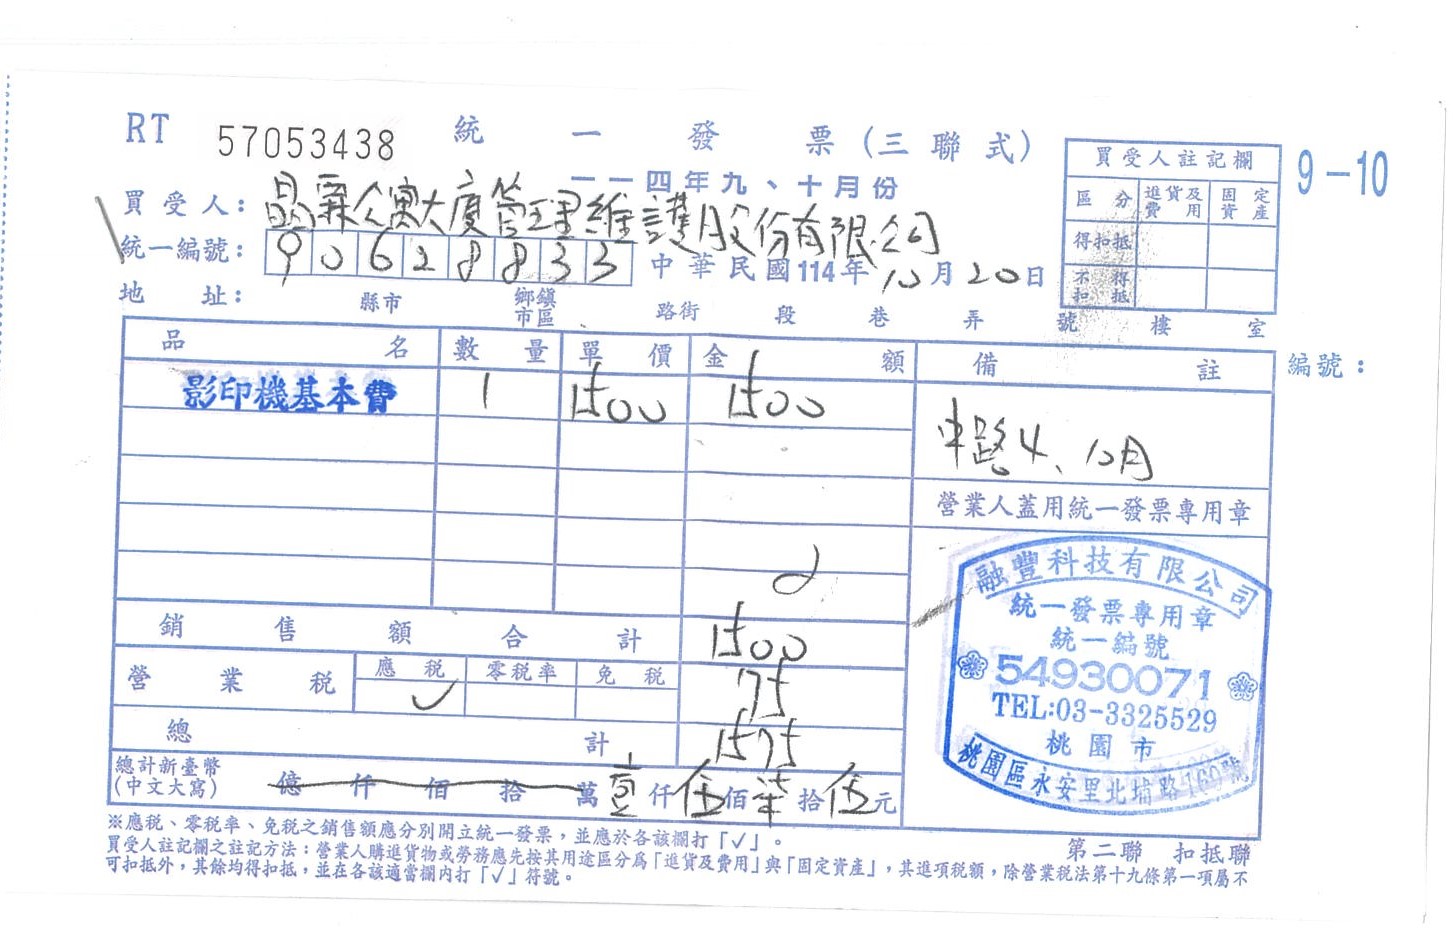 RT 57053438 統一發票(三聯式)
一一四年九、十月份
9-10
買受人註記欄
區分 進貨及費用 固定資產
得扣抵
不得扣抵
買受人: 晶霖公寓大廈管理維護股份有限公司
統一編號: 90628833 中華民國114年10月20日
地址: 縣市 鄉鎮市區 路街 段 巷 弄 號 樓 室
品名 數量 單價 金額 備註 編號:
影印機基本費 1 1500 1500
中路4、10月
營業人蓋用統一發票專用章
融豐科技有限公司
統一發票專用章
統一編號
54930071
TEL:03-3325529
桃園市
桃園區永安里北埔路169號
銷售額合計 1500
營業稅 應稅 ✓ 零稅率 免稅 75
總計 1575
總計新臺幣
(中文大寫) 億 仟 佰 拾 萬 壹 仟 伍 佰 柒 拾 伍 元
※應稅、零稅率、免稅之銷售額應分別開立統一發票,並應於各該欄打「✓」。
第二聯 扣抵聯
買受人註記欄之註記方法:營業人購進貨物或勞務應先按其用途區分為「進貨及費用」與「固定資產」,其進項稅額,除營業稅法第十九條第一項屬不
可扣抵外,其餘均得扣抵,並在各該適當欄內打「✓」符號。